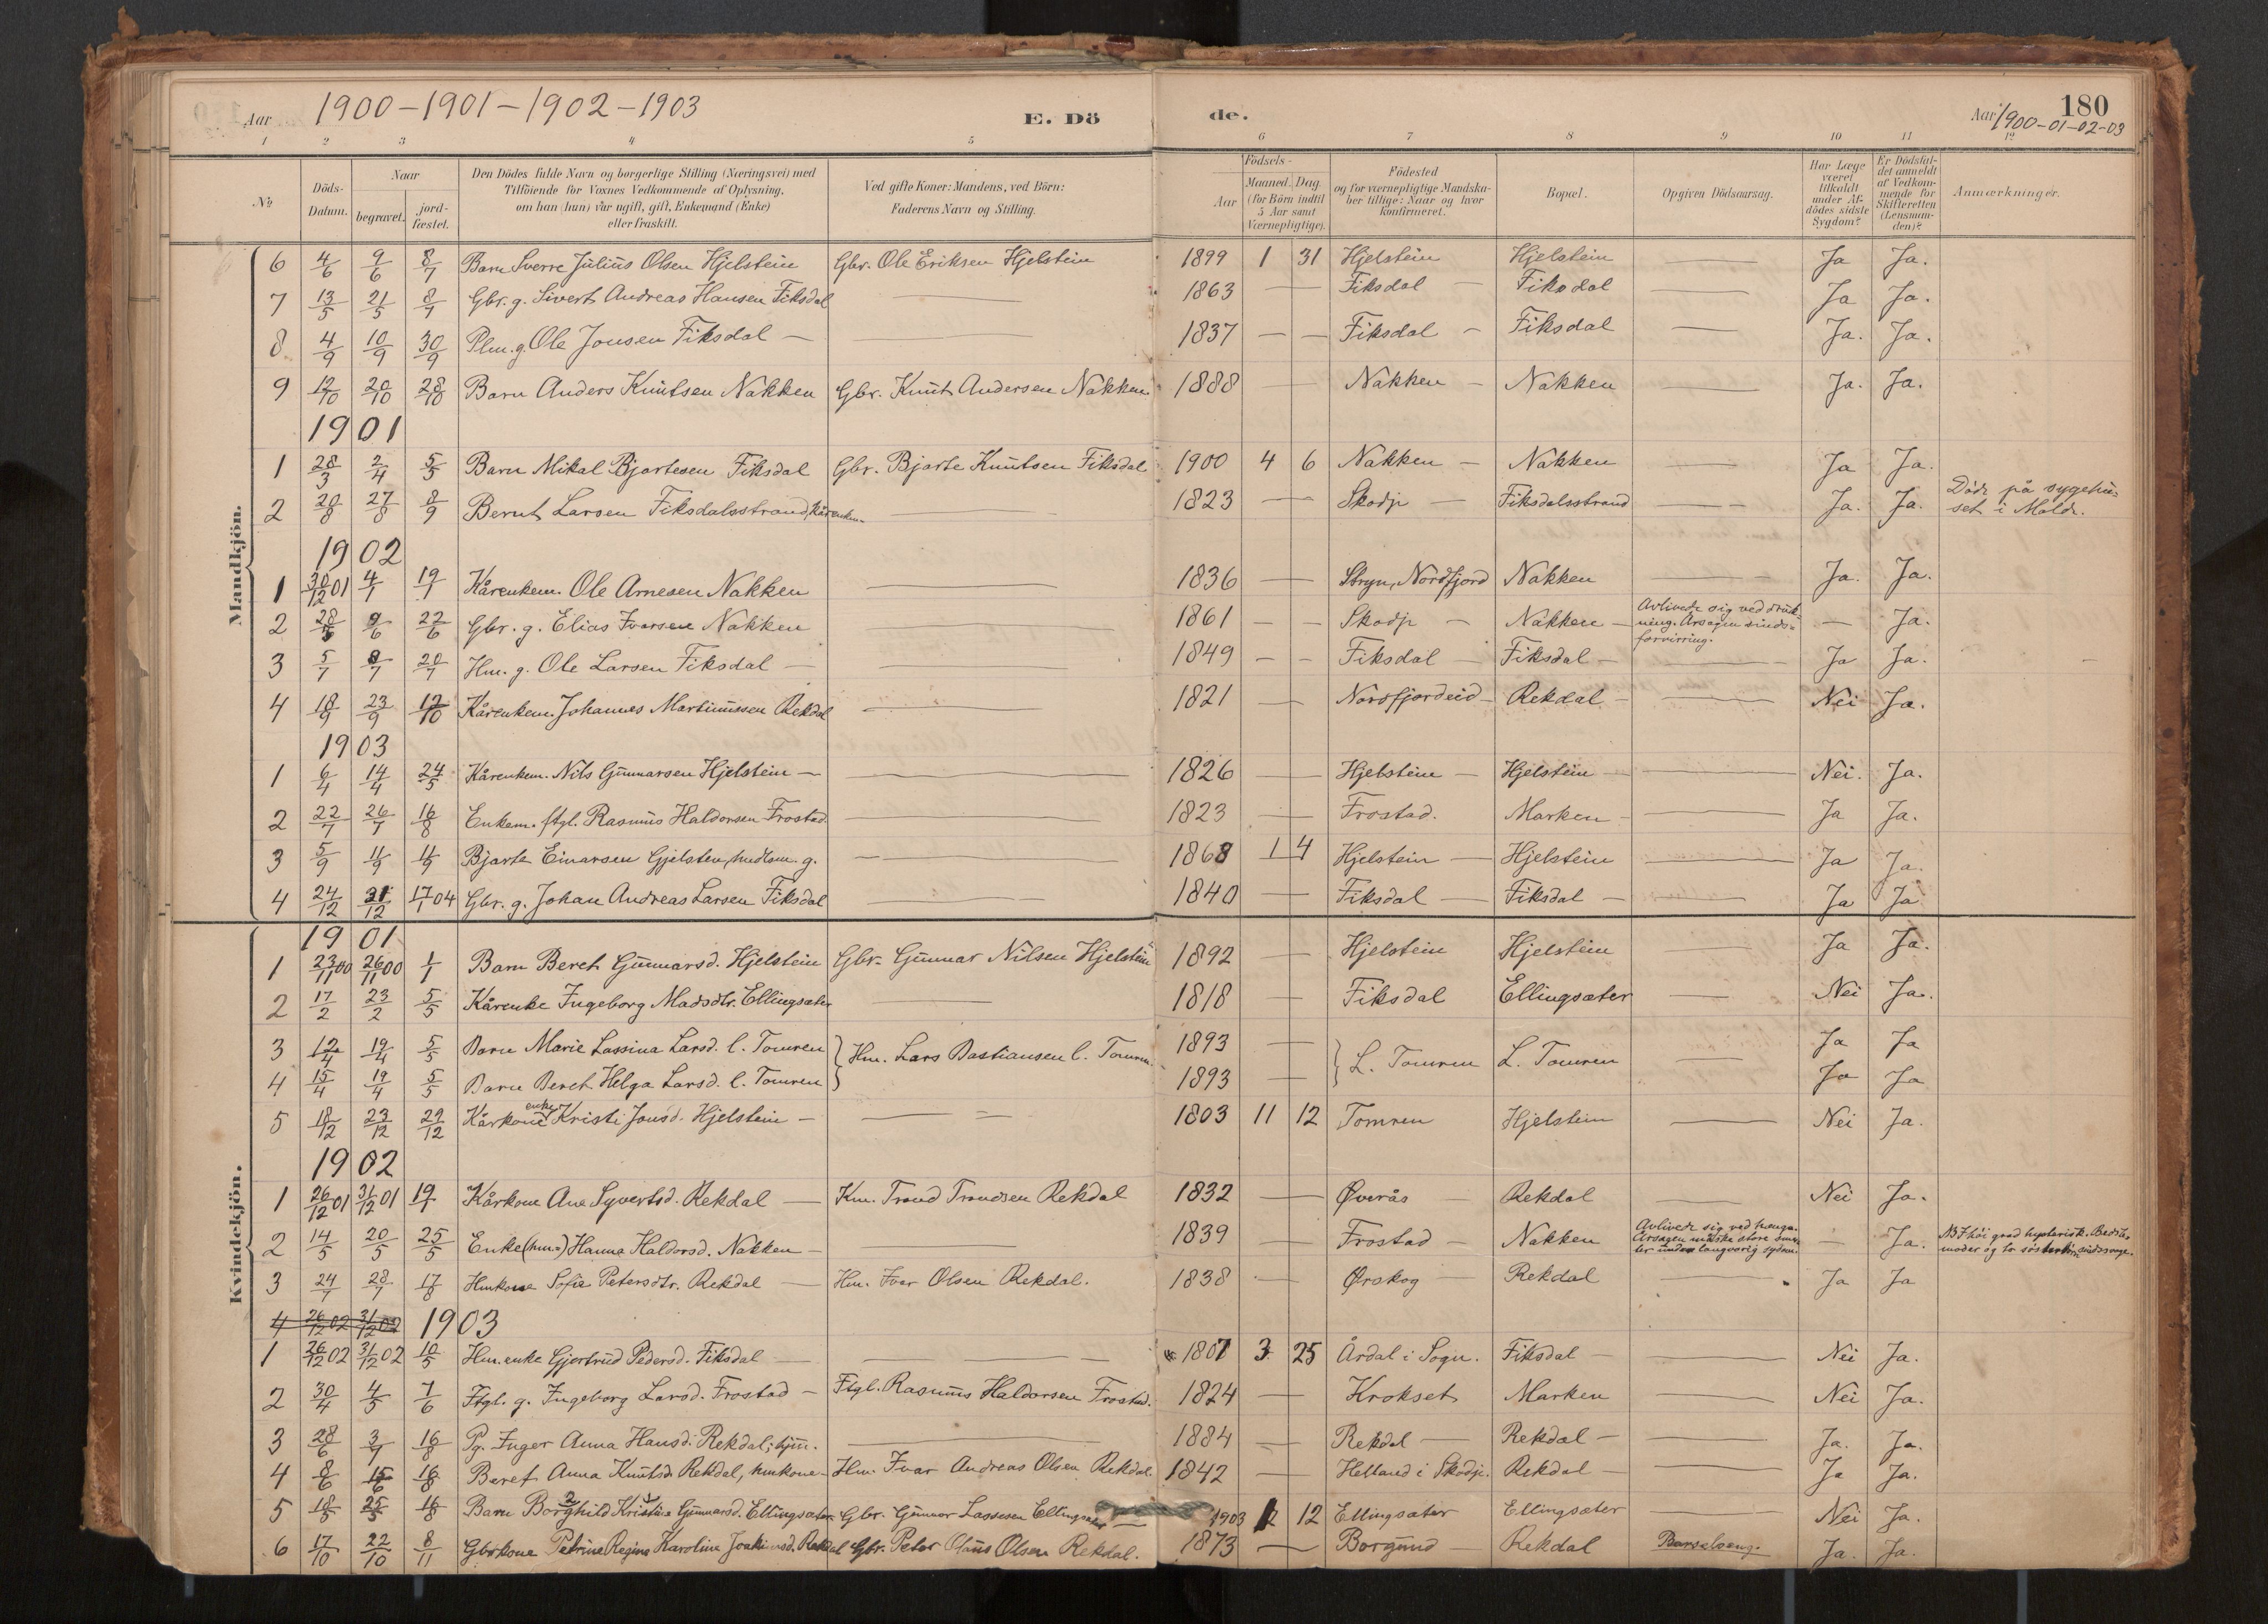 Aar 1900-1901-1902-1903 E. Dö de. Aar 1900-01-02-03 180
1 2 3 4 5 6 7 8 9 10 11 12
№ Döds-Datum. Naar begravet. jord-fæstet. Den Dödes fulde Navn og borgerlige Stilling (Næringsvei) med Tilföiende for Voxnes Vedkommende af Oplysning, om han (hun) var ugift, gift, Enkemand (Enke) eller fraskilt. Ved gifte Koner: Mandens, ved Börn: Faderens Navn og Stilling. Födsels- Aar Maaned. Dag (for Börn indtil 5 Aar samt Værnepligtige). Födested og for værnepligtige Mandska-ber tillige: Naar og hvor konfirmeret. Bopæl. Opgiven Dödsaarsag. Har Læge været tilkaldt under Af-dödes sidste Sygdom? Er Dödsfal-det anmeldt af Vedkom-mende for Skifteretten (Lensman-den)? Anmærkninger.
Mandkjön.
6 4/6 9/6 8/7 Barn Sverre Julius Olsen Hjelstein Gbr. Ole Eriksen Hjelstein 1899 1 31 Hjelstein Hjelstein — Ja Ja.
7 13/5 21/5 8/7 Gbr. g. Sivert Andreas Hansen Fiksdal — 1863 — Fiksdal — Fiksdal — Ja Ja.
8 4/9 10/9 30/9 Plm. g. Ole Jonsen Fiksdal — 1837 — — Fiksdal — Fiksdal — Ja. Ja.
9 12/10 20/10 28/10 Barn Anders Knutsen Nakken Gbr. Knut Andersen Nakken. 1888 — Nakken — Nakken — Ja. Ja.
1901
1 28/3 2/4 5/5 Barn Mikal Bjartesen Fiksdal Gbr. Bjarte Knutsen Fiksdal 1900 4 6 Nakken — Nakken — Ja Ja.
2 20/8 27/8 8/9 Bernt Larsen Fiksdalsstrand, Kårenkem. — 1823 — Skodje — Fiksdalsstrand — Ja. Ja. Döde på sygehu-set i Molde.
1902
1 30/12 01 4/1 19/1 Kårenkem. Ole Arnesen Nakken — 1836 — Stryn, Nordfjord Nakken — Ja. Ja.
2 28/5 9/6 22/6 Gbr. g. Elias Ivarsen Nakken 1861 — — Skodje — Nakken — Avlivede sig ved druk-ning. Årsagen sinds-forvirring. — Ja.
3 5/7 8/7 20/7 Hm. g. Ole Larsen Fiksdal — 1849 — — Fiksdal — Fiksdal — Ja Ja.
4 18/9 23/9 12/10 Kårenkem. Johannes Martinussen Rekdal — 1821 — Nordfjordeid — Rekdal — Nei Ja.
1903
1 6/4 14/4 24/5 Kårenkem. Nils Gunnarsen Hjelstein — 1826 — Hjelstein — Hjelstein — Nei. Ja.
2 22/7 26/7 16/8 Enkem. ftgl. Rasmus Haldorsen Frostad — 1823 — Frostad. Marken — Ja Ja.
3 5/9 11/9 11/9 Bjarte Einarsen Gjelsten, g. — 1868 1 4 Hjelstein — Hjelstein — Ja Ja.
4 24/12 31/12 17/1 04 Gbr. g. Johan Andreas Larsen Fiksdal — 1840 — Fiksdal — Fiksdal — Ja Ja
Kvindekjön.
1901
1 23/11 00 26/11 00 1/1 Barn Beret Gunnarsd. Hjelstein Gbr. Gunnar Nilsen Hjelstein 1892 — Hjelstein Hjelstein — Ja Ja.
2 17/2 23/2 5/5 Kårenke Ingeborg Madsdtr. Ellingsæter — 1818 — Fiksdal Ellingsæter — Nei Ja.
3 12/4 19/4 5/5 Barn Marie Lassina Larsd. l. Tomren } Hm. Lars Bastiansen l. Tomren. 1893 — } L. Tomren L. Tomren — Ja Ja
4 15/4 19/4 5/5 Barn Beret Helga Larsd. l. Tomren } 1893 — Ja Ja
5 18/12 23/12 29/12 Kårkone enke Kristi Jonsd. Hjelstein — 1803 11 12 Tomren Hjelstein — Nei Ja.
1902
1 26/12 01 31/12 01 19/1 Kårkone Ane Syvertsd. Rekdal — Km. Trond Trondsen Rekdal 1832 — Øverås — Rekdal — Nei Ja.
2 14/5 20/5 25/5 Enke (hm.) Hanna Haldorsd. Nakken — 1839 — Frostad — Nakken Avlivede sig ved hængn. Årsagen måske store smer-ter under langvarig sygdom. — Ja. NB I höi grad hysterisk. Bedste-moder og to søsterbörn sindssyge.
3 24/7 28/7 17/8 Hmkone Sofie Petersdtr. Rekdal — Hm. Ivar Olsen Rekdal. 1838 — Ørskog — Rekdal Ja Ja
4 26/12 02 31/12 02 1903
1 26/12 02 31/12 02 10/5 Hm. enke Gjertrud Pedersd. Fiksdal — 1807 3 25 Årdal i Sogn. Fiksdal — Nei Ja.
2 30/4 4/5 7/6 Ftgl. g. Ingeborg Larsd. Frostad — Ftgl. Rasmus Haldorsen Frostad. 1824 — Krokset Marken — Nei Ja.
3 28/6 3/7 16/8 Pg. Inger Anna Hansd. Rekdal, — 1884 — Rekdal — Rekdal — Ja. Ja.
4 8/6 15/6 16/8 Beret Anna Knutsd. Rekdal, hmkone — Hm. Ivar Andreas Olsen Rekdal. 1842 — Helland i Skodje. Rekdal — Ja Ja.
5 18/5 25/5 16/8 Barn Borghild Kristine Gunnarsd. Ellingsæter. Gbr. Gunnar Lassesen Ellingsæter 1903 2 12 Ellingsæter Ellingsæter — Nei Ja.
6 17/10 22/10 8/11 Gbrkone Petrine Regine Karoline Joakimsd. Rekdal Gbr. Peter Olaus Olsen Rekdal. 1873 — Borgund — Rekdal Barselseng. Ja. Ja.